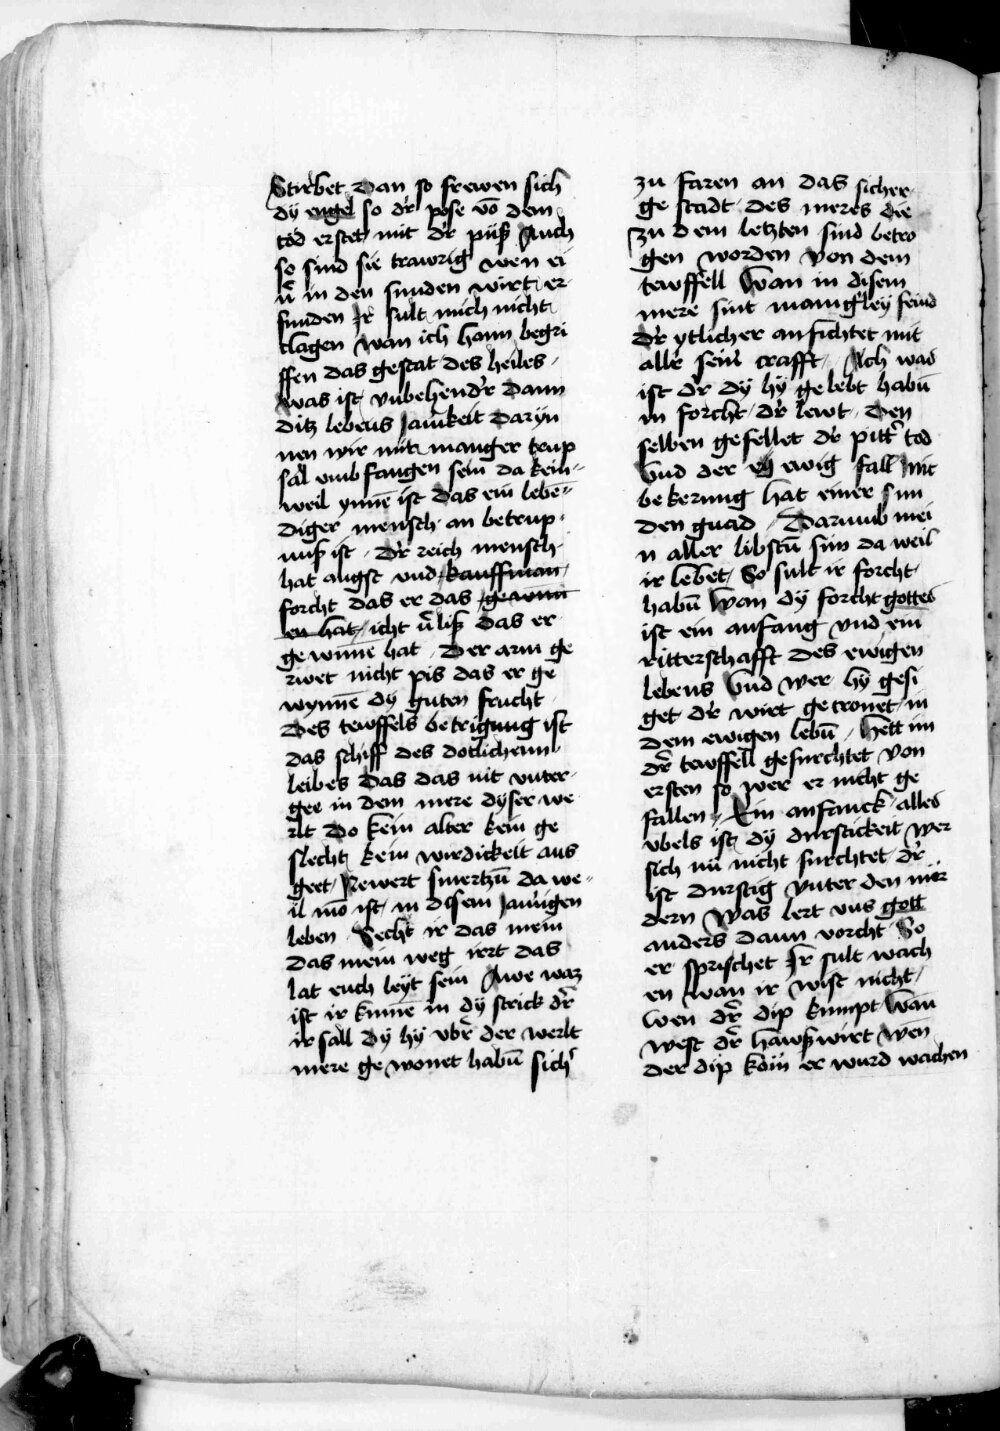 Stirbet dan so frewen sich
dÿ engel so dʼr pose võ dem
tod erstet mit dʼr püß Auch
so sind sie trawrig wen ei
ñ in den sunden wirt er
funden Ir sult mich nicht
clagen wan ich hann begri
ffen das gestat des heiles
was ist vnbehendʼr dann
ditz lebens Jamʼkeit daryn
nen wir mit manger trup
sal vmb fangen sein da kein
weil ynnē ist das ein lebē
diger mensch an betrup
nuß ist dʼr reich mensch
hat angst vnd kauffman
forcht das er das gewunn
en hat icht vʼliß das er
gewinne hat Der arm ge
rwet nicht pis das er ge
wynnē dy guten frucht
Des tewffels betrigung ist
das schiff des dotlichenn
leibes das das nit vnter
gee in dem mere dyser we
rlt do kein alter kein ge
slecht kein wirdickeit aus
geet Newert smertzū da we
il mō ist in disem Jamʼigen
leben Secht ir das mein
das mein weg irrt das
lat euch leyt sein Awe waz
ist ir kumē in dy strick dʼr
ir sall dy hy vbʼr der werlt
mere ge wonet habū sichʼ
zu faren an das sicher
ge stadt des meres die
zu dem letzten sind betro
gen worden von dem
tewffell Wan in disem
mere sint manigʼley feind
dʼr ytlicher anfichtet mit
allʼr seinʼ crafft Ach was
ist dʼr dy hy gelebt habū
in forcht dʼr lewt Den
selben gefellet dʼr pittʼ tod
Vnd der ewig fall mit
bekerung hat einer sun
den gnad Darumb mei
n aller libstū sun da weil
ir lebet So sult ir forcht
habū Wan dy forcht gottes
ist ein anfang vnd ein
ritterschafft des ewigen
lebens Vnd wer hy gesi
get dʼr wirt getronet in
dem ewigen lebū Hett im
dʼr tewffell gefurchtet von
ersten so wer er nicht ge
fallen Ein anfanck alles
vbels ist dy durstickeit wer
sich nū nicht furchtet dʼr
ist durstig vnter den mör
dern Was lert vns gott
anders dann vorcht So
er sprichet Ir sult wach
en wan ir wist nicht
wen dʼr dip kumpt wan
west dʼr hawßwirt wen
der dip köm er wurd wachen